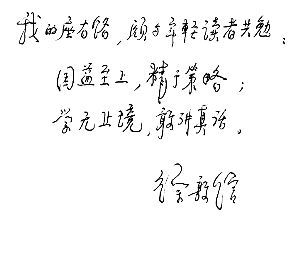 我的座右铭，愿与年轻读者共勉：
国益至上，精于策略；
学无止境，敢讲真话。
徐敦信